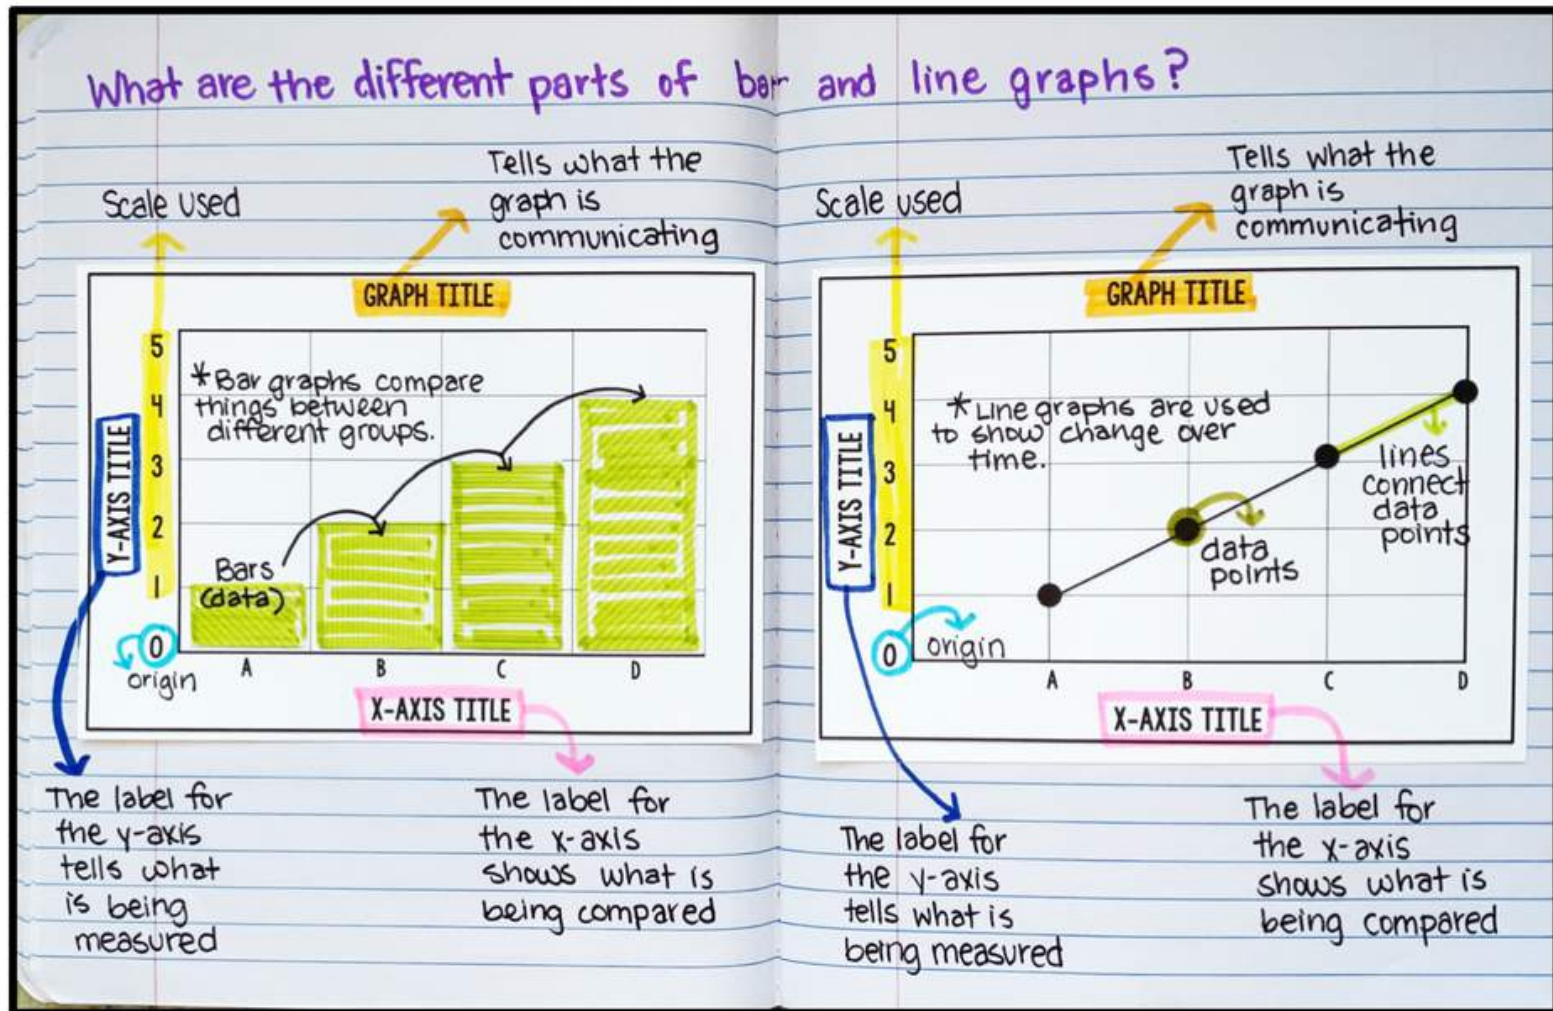 What are the different parts of bar and line graphs?
Scale used
Tells what the
graph is
communicating
GRAPH TITLE
5
4
3
2
1
0
Y-AXIS TITLE
*Bar graphs compare
things between
different groups.
Bars
(data)
origin
A B C D
X-AXIS TITLE
The label for
the y-axis
tells what
is being
measured
The label for
the x-axis
shows what is
being compared
Scale used
Tells what the
graph is
communicating
GRAPH TITLE
5
4
3
2
1
0
Y-AXIS TITLE
*Line graphs are used
to show change over
time.
lines
connect
data
points
data
points
origin
A B C D
X-AXIS TITLE
The label for
the y-axis
tells what is
being measured
The label for
the x-axis
shows what is
being compared